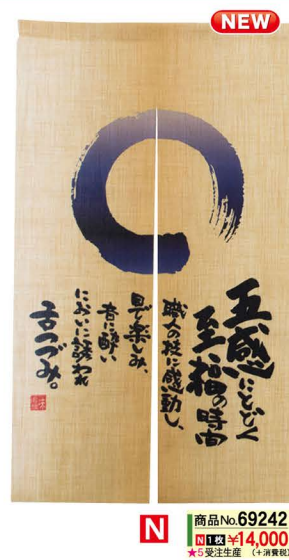 NEW
五感にとどく
至福の時間
職人の技に感動し、
見て楽しみ、
音に酔い
においに誘われ
舌つづみ。
N
商品No.69242
N 1枚 ¥14,000
★5受注生産 (+消費税)